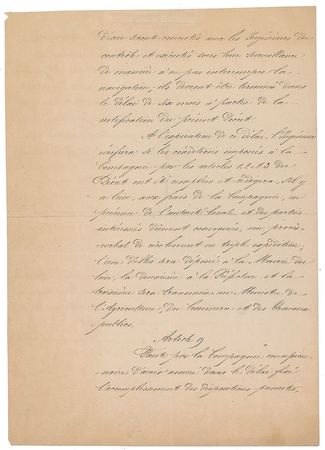 d'eau seront concertés avec les Ingénieurs du
contrôle et exécutés sous leur surveillance
de manière à ne pas interrompre la
navigation; ils devront être terminés dans
le délai de six mois à partir de la
notification du présent décret.
A l'expiration de ce délai l'Ingénieur
vérifiera si les conditions imposées à la
Compagnie par les articles 1.2 et 3 du
Décret ont été remplies et rédigera, s'il y
a lieu, aux frais de la Compagnie, en
présence de l'autorité locale et des parties
intéressées dûment convoquées, un procès-
verbal de récolement en triple expédition,
l'un d'elles sera déposée à la Mairie du
lieu, la deuxième à la Préfecture et la
troisième sera transmise au Ministre de
l'Agriculture, du Commerce et des Travaux
publics.
Article 9
Faute par la Compagnie concession-
naire d'avoir assuré dans le délai fixé
l'accomplissement des dispositions prescrites,